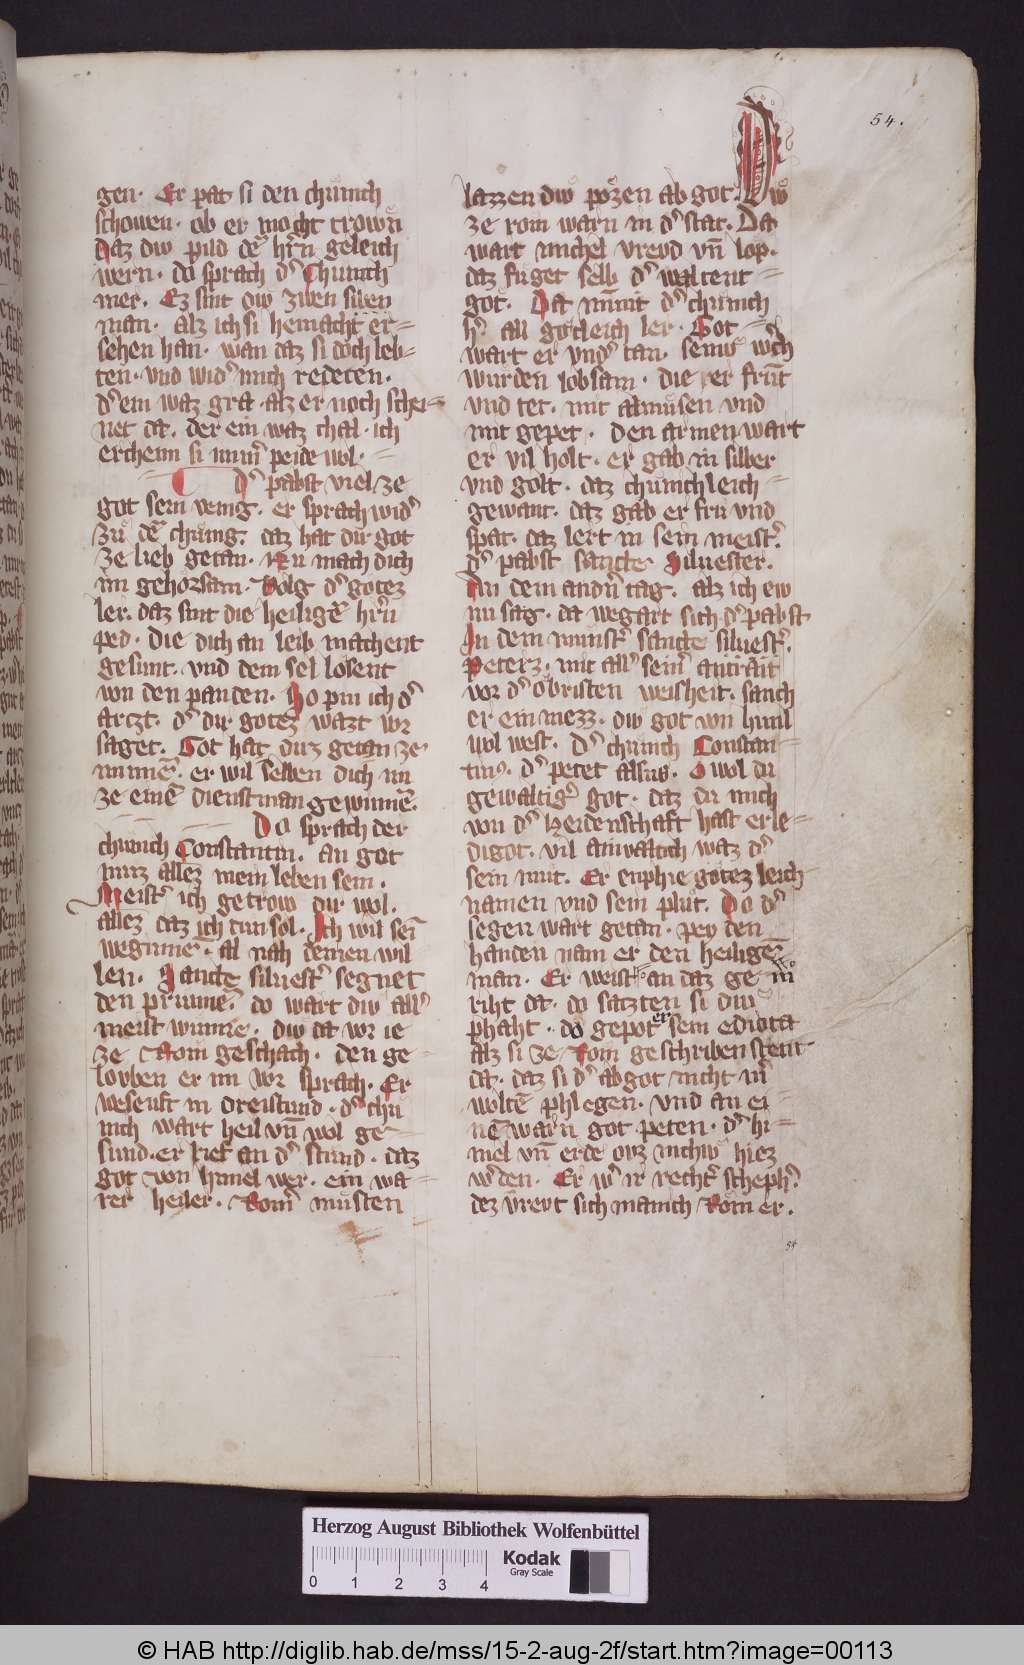 54.
gen. Er pat si den chunich
schowen. ob er mocht trowñ
Daz diw pild dē hr̄n geleich
wern. do sprach d' Chunich
mer. Ez sint diw zwen siben
man. Alz ich si hemacht er=
sehen han. wan daz si doch leb=
ten. vnd wid' mich redeten.
d' ein waz gra. alz er noch schei=
net da. der ein waz chal. ich
erchenn si nim̄ peide wol.
D' pabst viel ze
got sein venig. er sprach wid'
zů dē chůnig. daz hat dir got
ze lieb getan. Nu mach dich
im gehorsam. Volg d' gotez
ler. daz sint die heiligē hr̄n
ped. die dich an leib machent
gesunt. vnd dem sel losent
von den panden. So pin ich d'
artzt. d' dir gotez wazt vor
saget. Got hat durz getan ze
minnē. er wil selben dich im
ze einē dienstman gewinnē.
Do sprach der
chunich Constantin. an got
muz allez mein leben sein.
Meist' ich getrow dir wol.
allez daz ich tun sol. Ich wil sein
weginnē. al nah deinen wil
len. Sancte siluest' segnet
den prunnē. do wart diw all'
meist wunne. diw da vor ie
ze Rom geschach. den ge=
louben er im vor sprach. Er
wesenft in dreistund. d' chu
nich wart heil vn̄ wol ge=
sund. er rief an d' stund. daz
got von himel wer. ein wa=
rer heiler. Rom' musten
lazzen diw pözen abgot. Diw
ze rom warn in d' stat. Da
wart michel vreud vn̄ lop.
daz fuget selb d' waltent=
got. Da nimit d' chunich
h' all gotleich ler. Got=
wart er vnd' tan. seiniw w'ch
wurden lobsam. die er frůt
vnd tet. mit almůsen vnd
mit gepet. den armen wart
er vil holt. er gab in silber
vnd golt. daz chunichleich=
gewant. daz gab er fru vnd
spat. daz lert in sein meist'.
d' pabst sancte Siluester.
An dem andn̄ tag. alz ich ew
nu sag. da wegart sich d' pabst
In dem munst' sancte siluest'.
Peterz. mit all' sein' antrait
vor d' obristen weisheit. sanch
er ein mezz. diw got von himl
wol west. d' chunich Constan=
tin9. d' petet alsus. O wol du
gewaltig' got. daz du mich
von d' heidenschaft hast erle=
digot. vil anwaltich waz d'
sein mut. Er enphie gotez leich
namen vnd sein plůt. Do d'
segen wart getan. pey den
handen nam er den heiligē
man. Er weist an daz ge in
riht da. do satzten si diw
phaht. do gepot er sein edicta
alz si ze Rom geschriben stent
da. daz si d' abgot nicht m'
woltē phlegen. vnd an ei=
nē warn got peten. d' hi=
mel vn̄ erde ouz nichiw hiez
w'den. Er w' ir recht' scheph'.
dez vreut sich manich Rom er.
54
Herzog August Bibliothek Wolfenbüttel
Kodak
Gray Scale
0 1 2 3 4
© HAB http://diglib.hab.de/mss/15-2-aug-2f/start.htm?image=00113